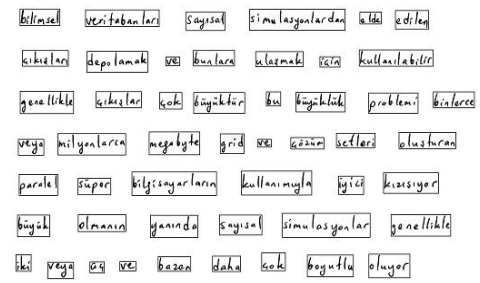 bilimsel veritabanları sayısal simulasyonlardan elde edilen
çıkışları depolamak ve bunlara ulaşmak için kullanılabilir
genellikle çıkışlar çok büyüktür bu büyüklük problemi binlerce
veya milyonlarca megabyte grid ve çözüm setleri oluşturan
paralel süper bilgisayarların kullanımıyla iyici kızışıyor
büyük olmanın yanında sayısal simulasyonlar genellikle
iki veya üç ve bazen daha çok boyutlu oluyor